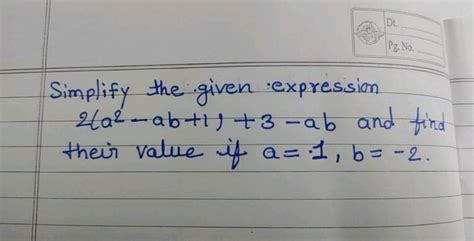 Dt.
Pg. No.
Simplify the given expression
2(a² - ab + 1) + 3 - ab and find
their value if a = 1, b = -2.